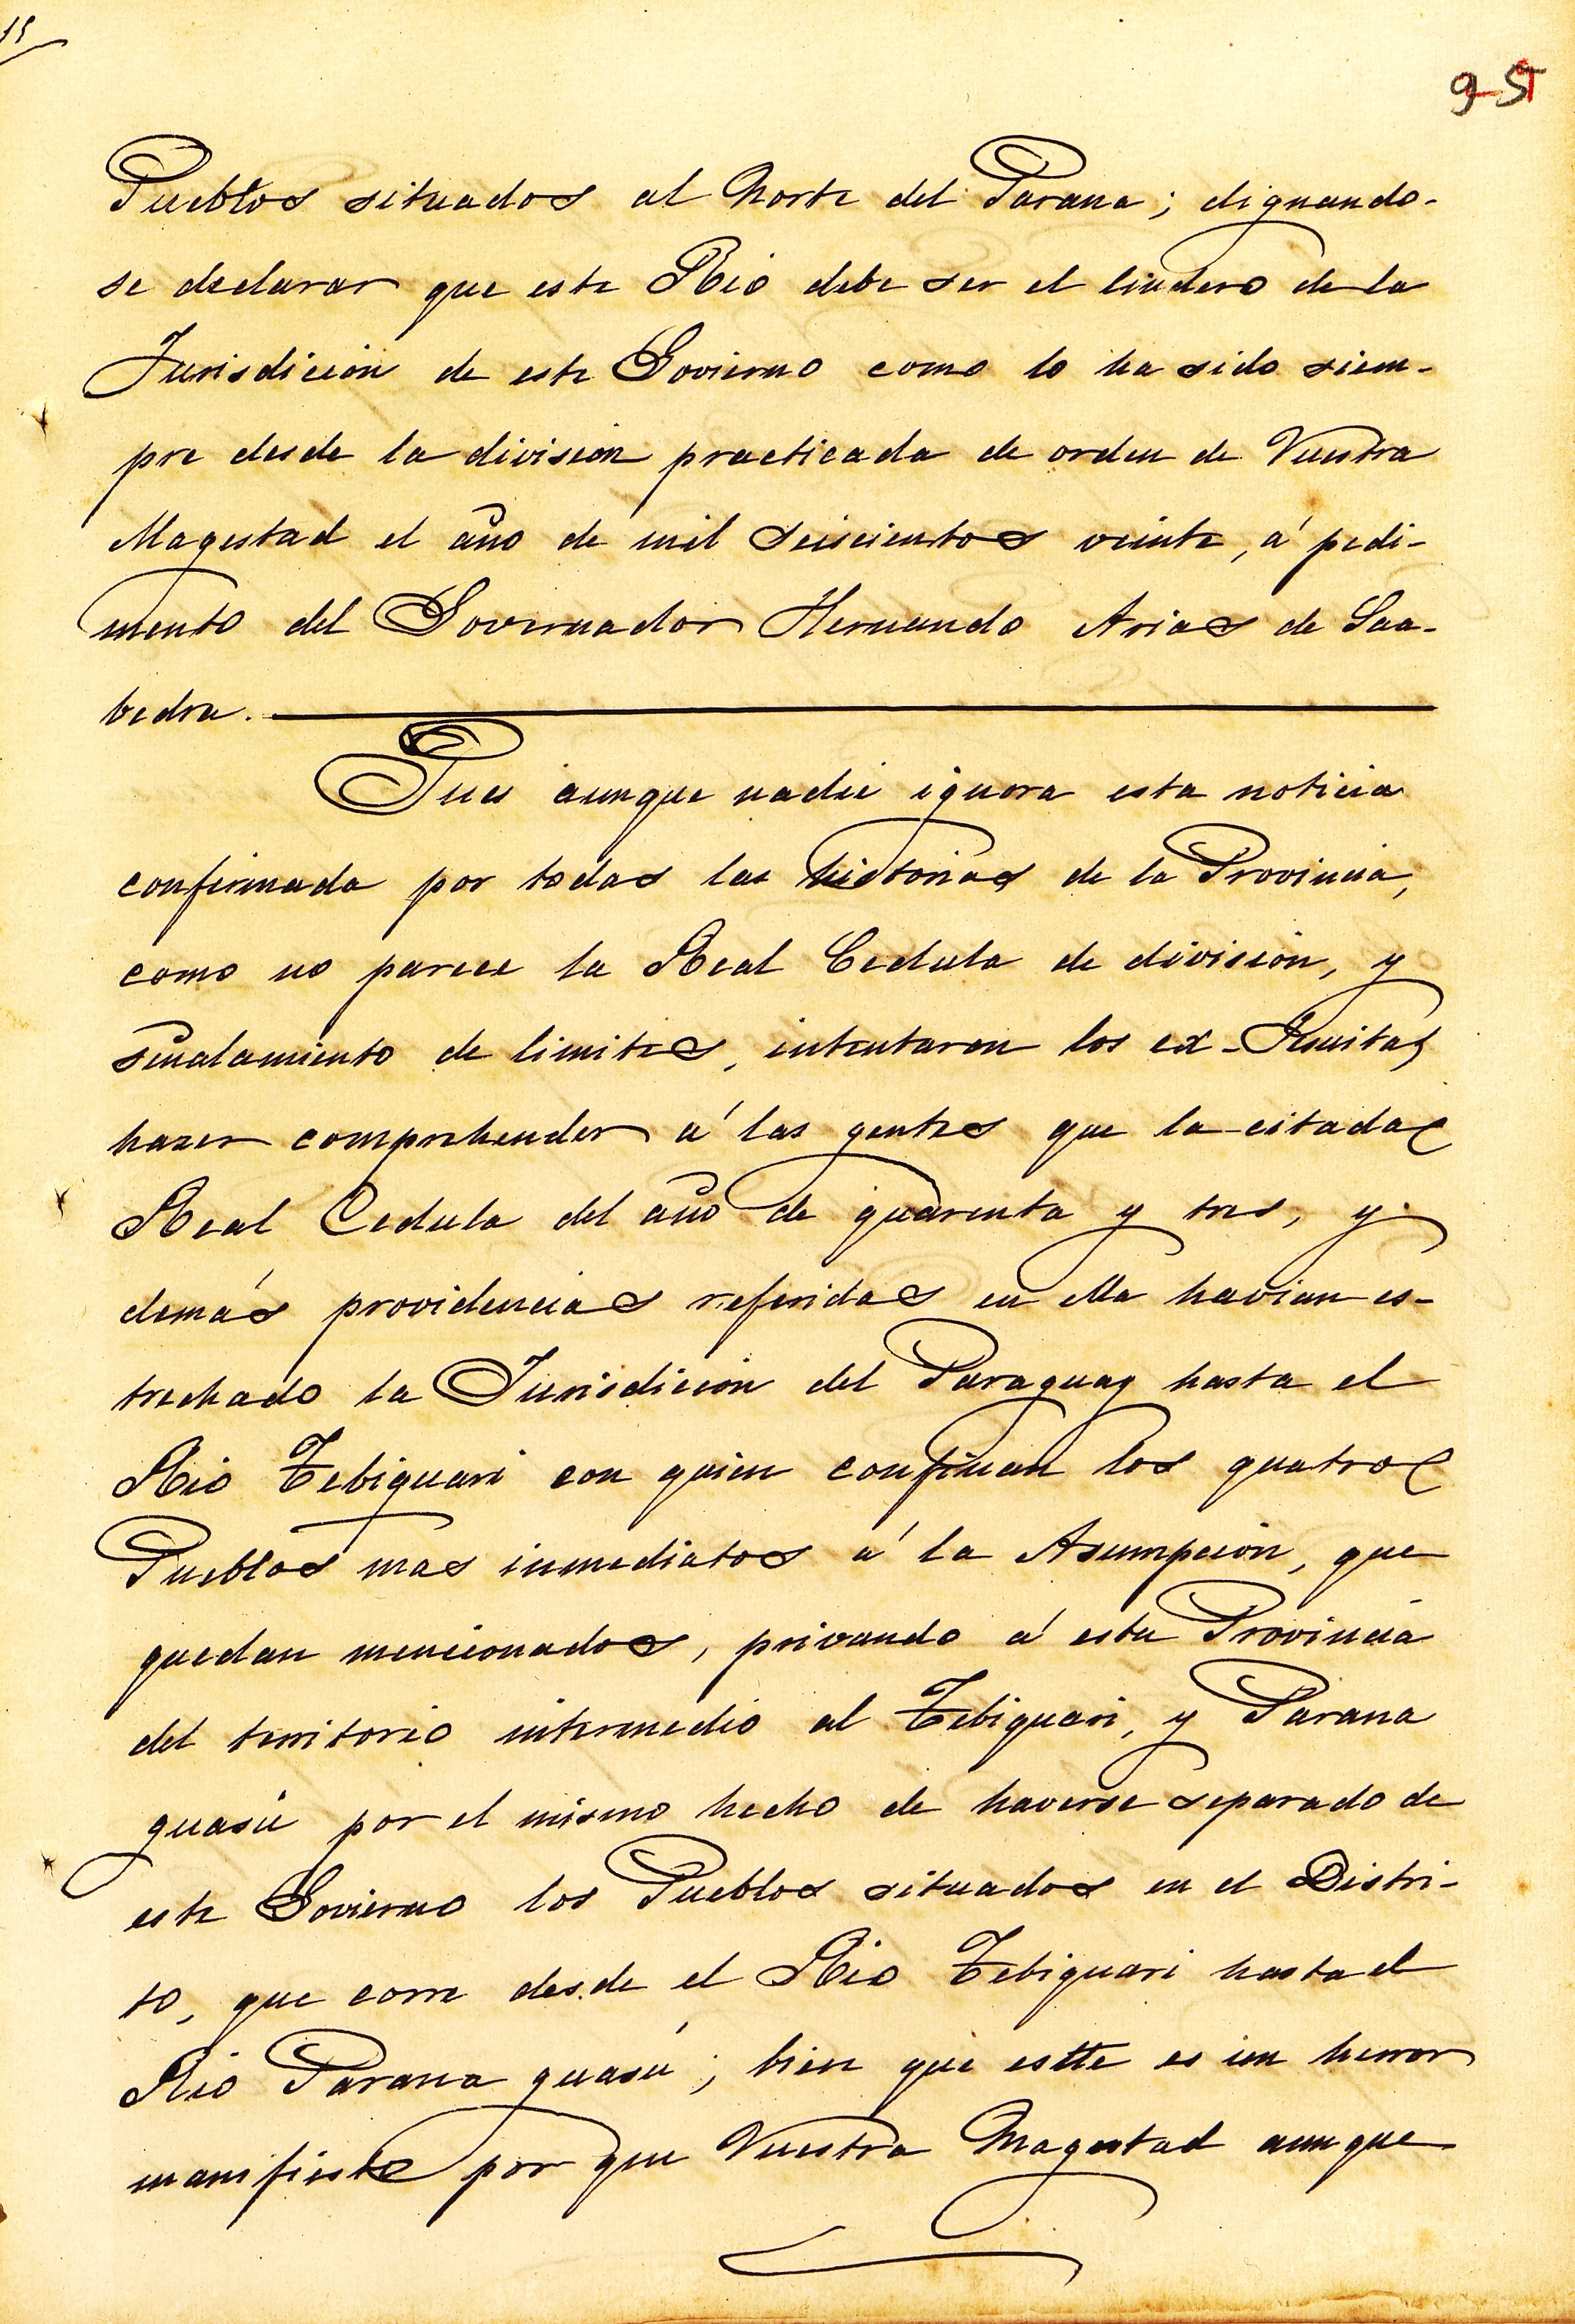 15
95
Pueblos situados al Norte del Parana; dignando-
se declarar que este Rio debe ser el lindero de la
Jurisdicion de este Govierno como lo ha sido siem-
pre desde la division practicada de orden de Vuestra
Magestad el año de mil seiscientos veinte, á pedi-
mento del Governador Hernando Arias de Saa-
bedra.
Pues aunque nadie ignora esta noticia
confirmada por todas las historias de la Provincia,
como no parece la Real Cedula de división, y
señalamiento de limites, intentaron los ex-Jesuitas
hazer comprehender á las gentes que la citada
Real Cedula del año de quarenta y tres, y
demás providencias referidas en ella havian es-
trechado la Jurisdicion del Paraguay hasta el
Rio Tebiquari con quien confinan los quatro
Pueblos mas inmediatos á la Asumpcion, que
quedan mencionados, privando á esta Provincia
del territorio intermedio al Tebiquari, y Parana
guasú por el mismo hecho de haverse separado de
este Govierno los Pueblos situados en el Distri-
to, que corre desde el Rio Tebiquari hasta el
Rio Parana guasú; bien que estte es un herror
manifiesto por que Vuestra Magestad aunque